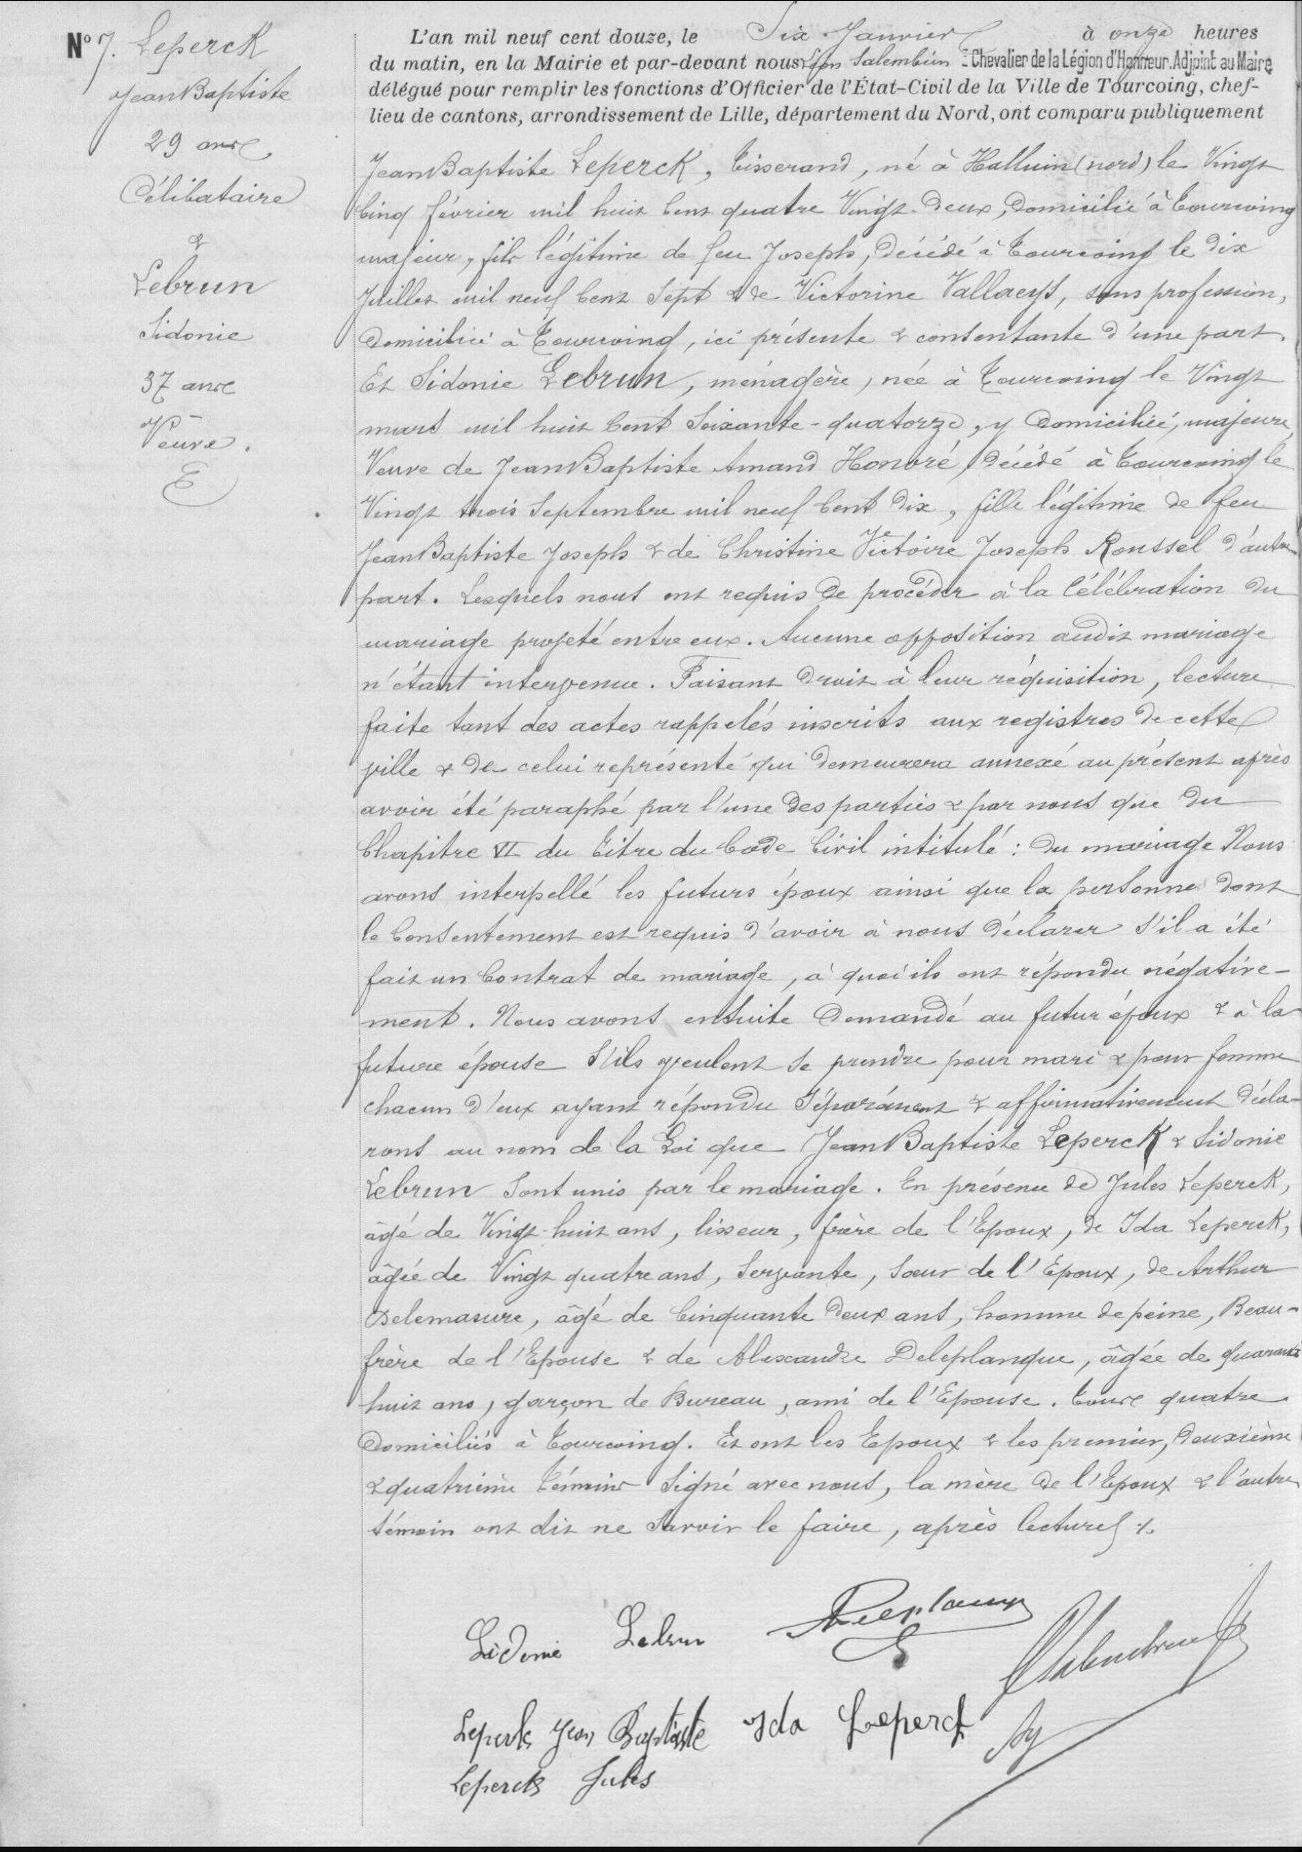 N° 7. Leperck
Jean Baptiste
29 ans
Célibataire
&
Lebrun
Sidonie
37 ans
Veuve.
L'an mil neuf cent douze, le Six Janvier à onze heures
du matin, en la Mairie et par-devant nous Léon Salembien Chevalier de la Légion d'Honneur. Adjoint au Maire
délégué pour remplir les fonctions d'Officier de l'État-Civil de la Ville de Tourcoing, chef-
lieu de cantons, arrondissement de Lille, département du Nord, ont comparu publiquement
Jean Baptiste Leperck, Tisserand, né à Halluin (nord) le Vingt
Cinq février mil huit Cent quatre Vingt-Deux, Domicilié à Tourcoing
majeur, fils légitime de feu Joseph, Décédé à Tourcoing le Dix
Juillet mil neuf Cent Sept & de Victorine Vallaeys, sans profession,
Domiciliée à Tourcoing, ici présente & consentante d'une part.
Et Sidonie Lebrun, ménagère, née à Tourcoing le Vingt
mars mil huit Cent Soixante-quatorze, y Domiciliée, majeure,
Veuve de Jean Baptiste Amand Honoré, Décédé à Tourcoing le
Vingt trois Septembre mil neuf Cent Dix, fille légitime de feu
Jean Baptiste Joseph & de Christine Victoire Joseph Roussel d'autre
part. Lesquels nous ont requis de procéder à la Célébration du
mariage projeté entre eux. Aucune opposition audit mariage
n'étant intervenue. Faisant Droit à leur réquisition, lecture
faite tant des actes rappelés inscrits aux registres de cette
ville & de celui représenté qui Demeurera annexé au présent après
avoir été paraphé par l'une des parties & par nous que du
Chapitre VI du Titre du Code Civil intitulé : Du mariage Nous
avons interpellé les futurs époux ainsi que la personne dont
le Consentement est requis d'avoir à nous Déclarer S'il a été
fait un Contrat de mariage, à quoi ils ont répondu négative-
ment. Nous avons ensuite Demandé au futur époux & à la
future épouse S'ils veulent Se prendre pour mari & pour femme
chacun d'eux ayant répondu Séparément & affirmativement Décla-
rons au nom de la Loi que Jean Baptiste Leperck & Sidonie
Lebrun Sont unis par le mariage. En présence de Jules Leperck,
âgé de Vingt-huit ans, lisseur, frère de l'Epoux, de Ida Leperck,
âgée de Vingt quatre ans, Servante, Soeur de l'Epoux, de Arthur
Delemasure, âgé de Cinquante Deux ans, homme de peine, Beau-
frère de l'Epouse & de Alexandre Deleplanque, âgée de quarante
huit ans, garçon de Bureau, ami de l'Epouse. Tous quatre
Domiciliés à Tourcoing. Et ont les Epoux & les premier, Deuxième
& quatrième Témoins Signé avec nous, la mère de l'Epoux & l'autre
témoin ont dit ne Savoir le faire, après lecture
Sidonie Lebrun
Leperck Jean Baptiste Ida Leperck
Leperck Jules